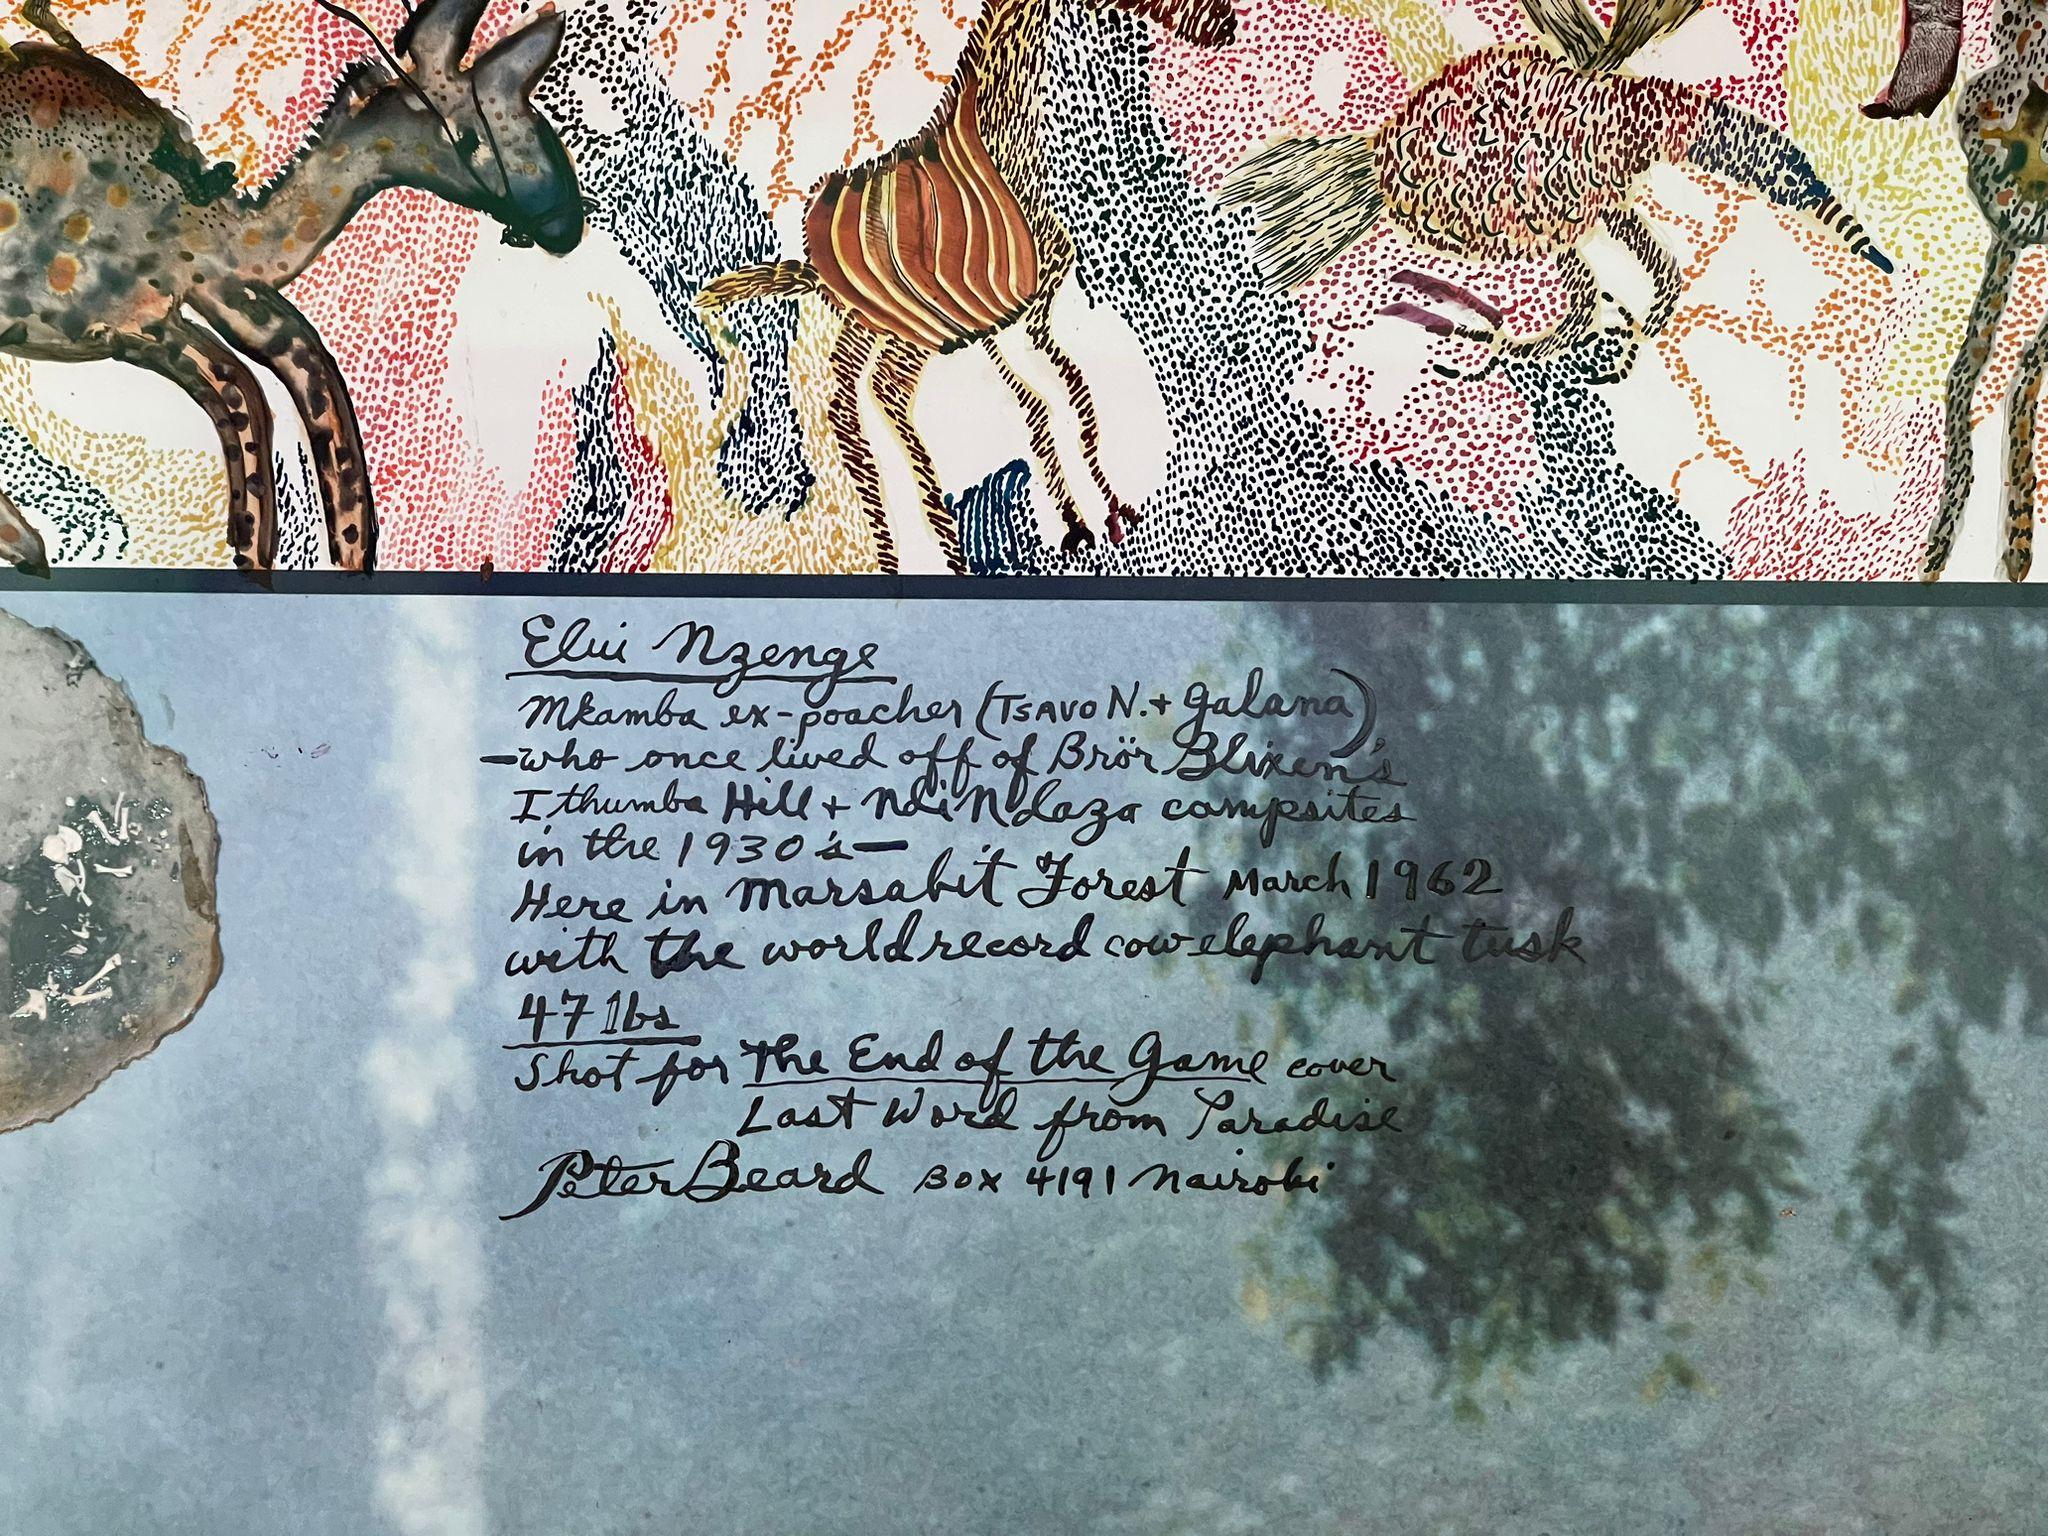 Elui Nzenge
Mkamba ex-poacher (TSAVO N. + Galana)
—who once lived off of Brör Blixen's
Ithumba Hill + Ndi Ndaza campsites
in the 1930's—
Here in Marsabit Forest March 1962
with the world record cow elephant tusk
47 lbs
Shot for The End of the Game cover
Last Word from Paradise
Peter Beard Box 4191 Nairobi